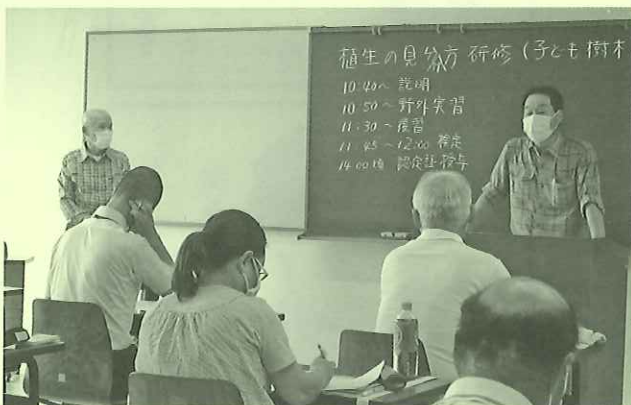 植生の見分方 研修 (子ども樹木
10:40~ 説明
10:50~ 野外実習
11:30~ 復習
11:45~12:00 検定
14:00頃 認定証授与